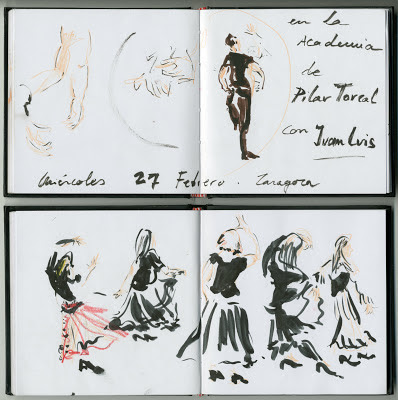 en la
Academia
de
Pilar Toreal
con Juan Luis
Miércoles 27 Febrero. Zaragoza